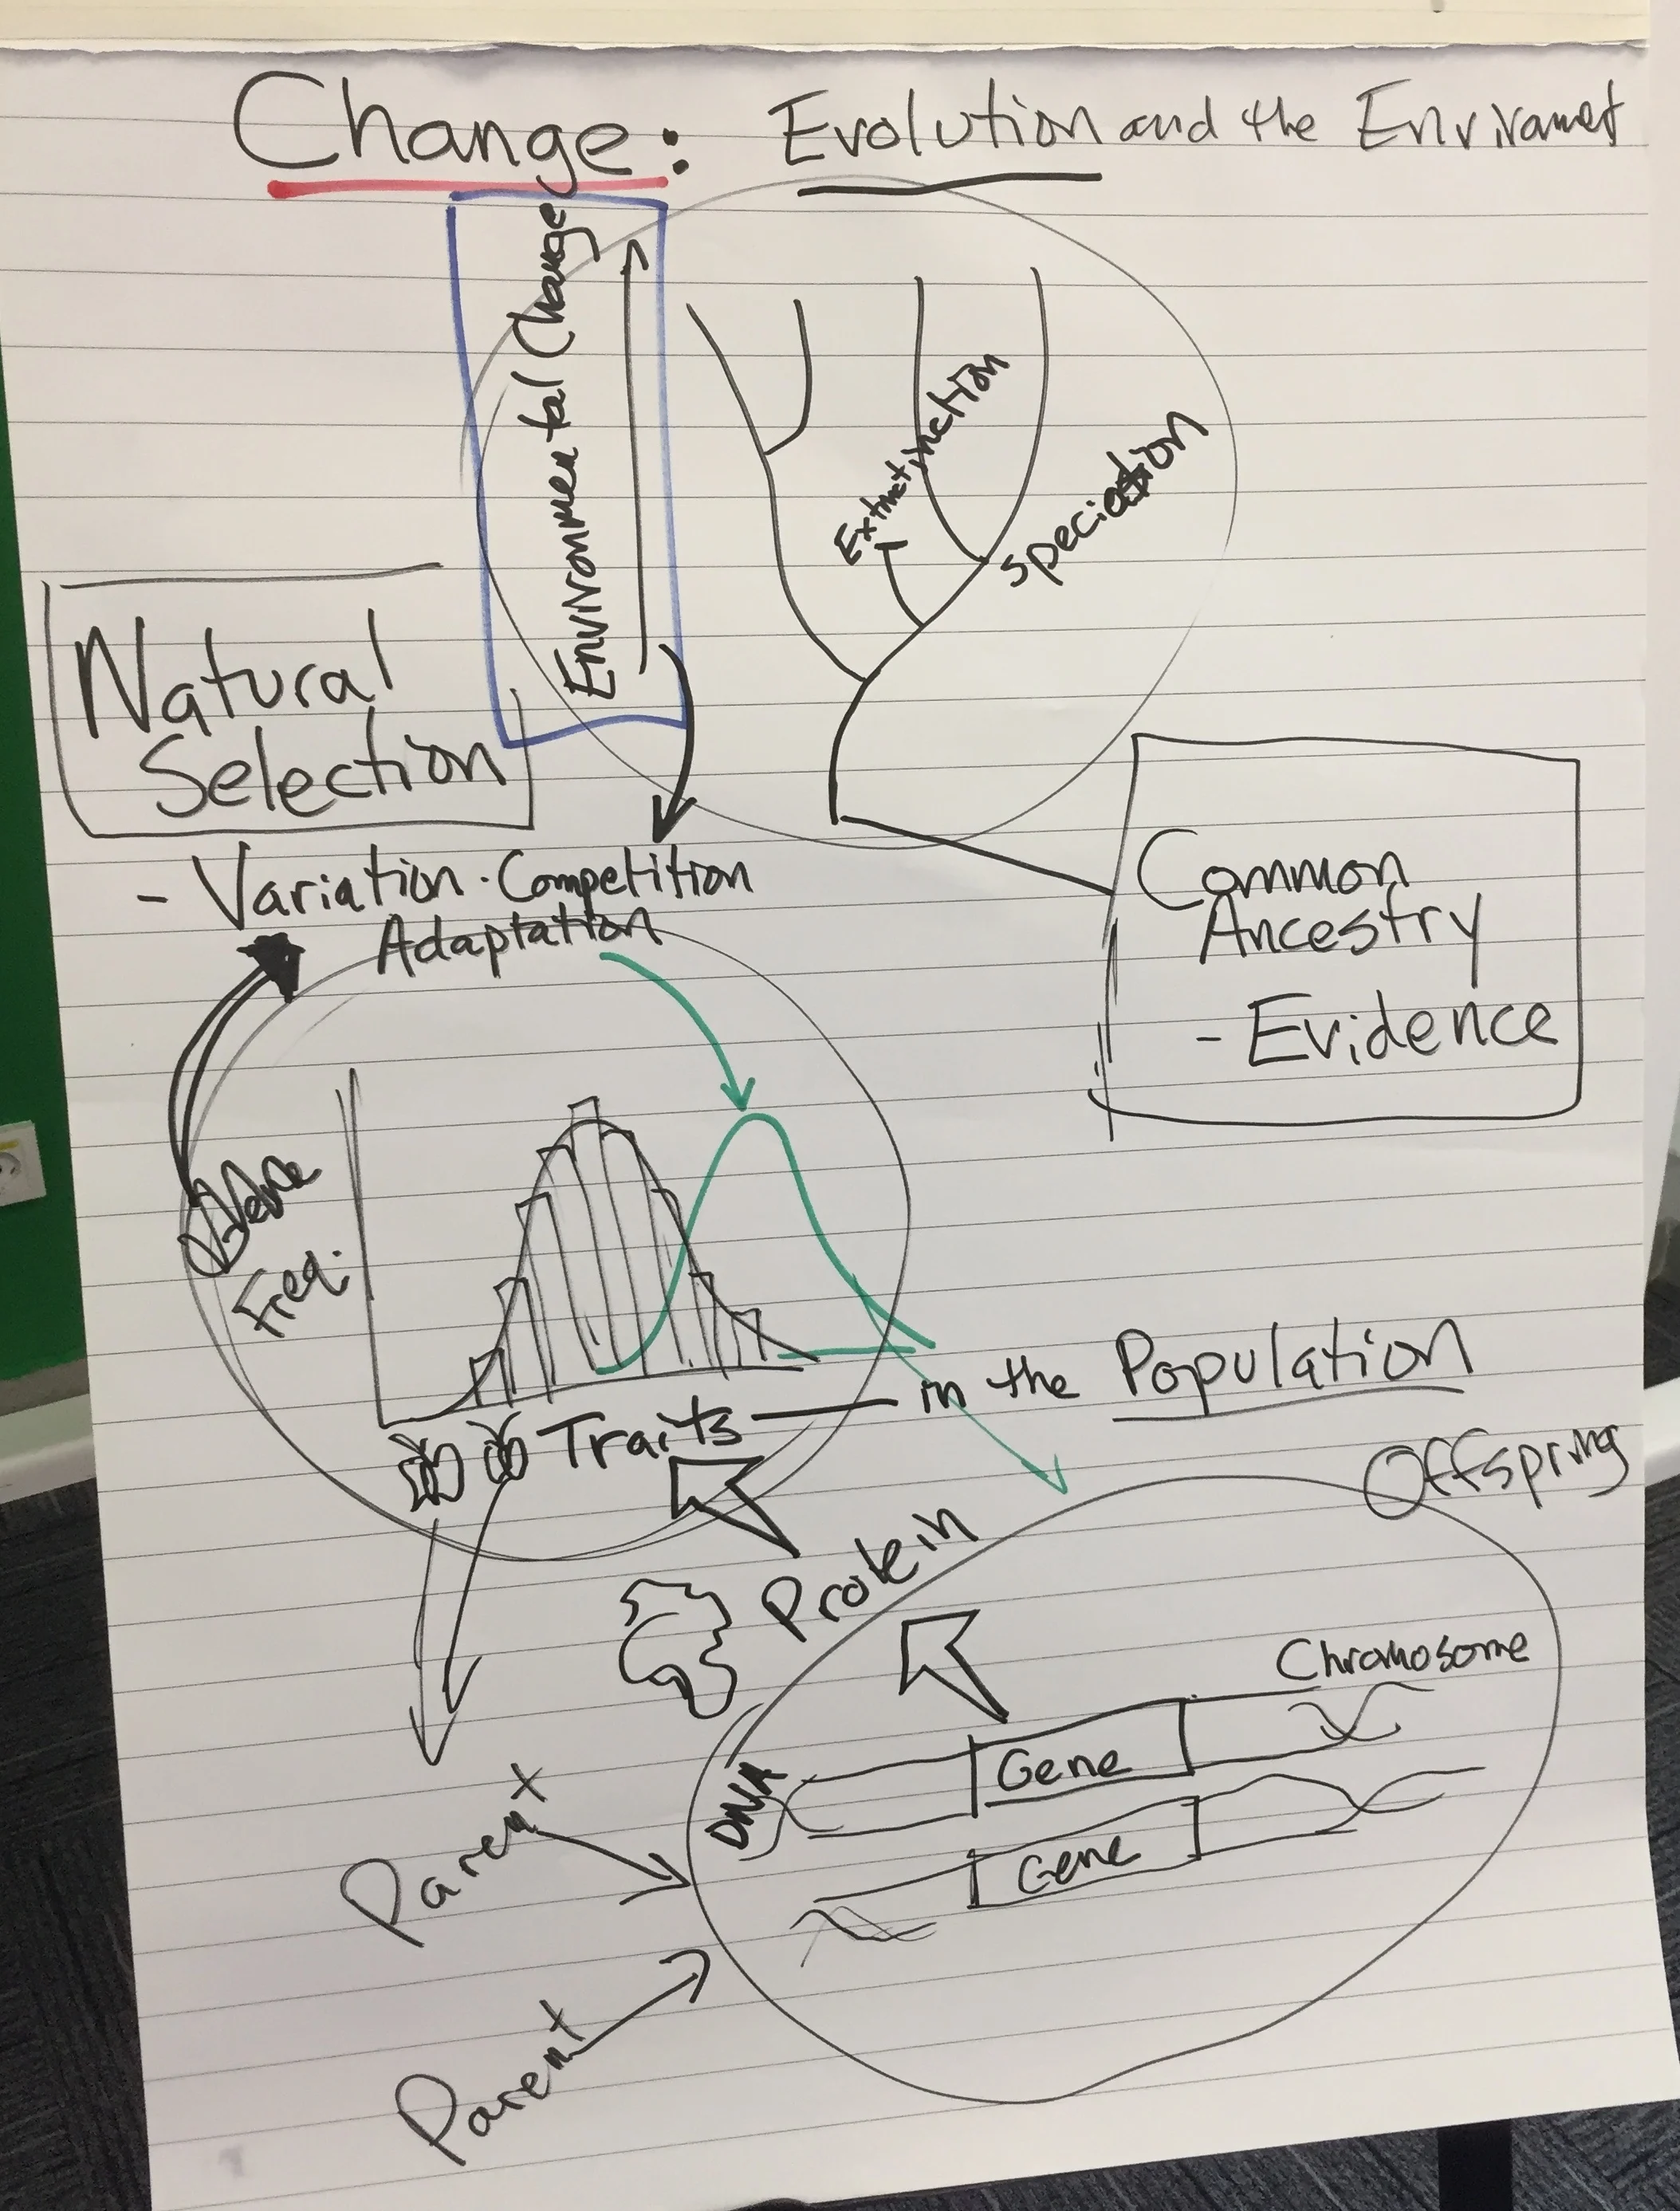 Change: Evolution and the Enviramet
Environmental Change
Extinction
Speciation
Natural
Selection
- Variation · Competition
Adaptation
Common
Ancestry
- Evidence
Freq.
Traits — in the Population
Offspring
Protein
Chromosome
DNA
Gene
Gene
Parent
Parent